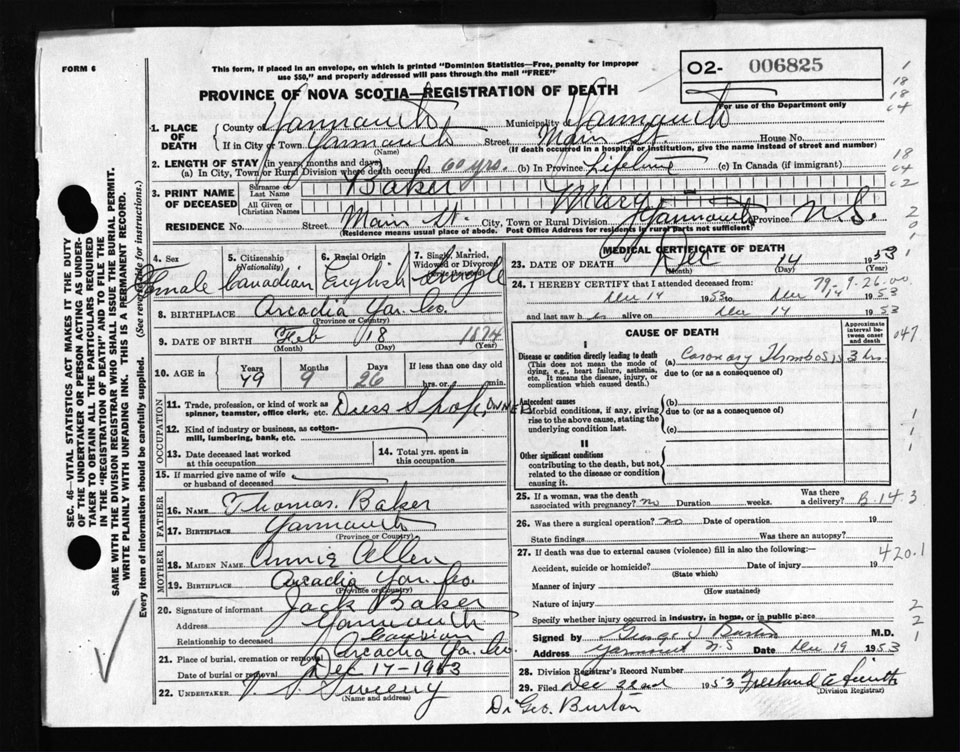 FORM 6
This form, if placed in an envelope, on which is printed "Dominion Statistics—Free, penalty for improper
use $50," and properly addressed will pass through the mail "FREE"
O2- 006825
PROVINCE OF NOVA SCOTIA—REGISTRATION OF DEATH
For use of the Department only
1. PLACE OF DEATH
County of Yarmouth Municipality Yarmouth
If in City or Town Yarmouth Street Main St. House No.
(Name) (If death occurred in a hospital or institution, give the name instead of street and number)
2. LENGTH OF STAY (in years, months and days)
(a) In City, Town or Rural Division where death occurred 60 yrs. (b) In Province Lifetime (c) In Canada (if immigrant)
3. PRINT NAME OF DECEASED
Surname or Last Name Baker
All Given or Christian Names Mary
RESIDENCE No. Street Main St. City, Town or Rural Division Yarmouth Province N.S.
(Residence means usual place of abode. Post Office Address for residents in rural parts not sufficient)
4. Sex Female
5. Citizenship (Nationality) Canadian
6. Racial Origin English
7. Single, Married, Widowed or Divorced Single
8. BIRTHPLACE Arcadia Yar. Co.
(Province or Country)
9. DATE OF BIRTH Feb 18 1874
(Month) (Day) (Year)
10. AGE in Years 79 Months 9 Days 26 If less than one day old hrs. or min.
OCCUPATION
11. Trade, profession, or kind of work as spinner, teamster, office clerk, etc. Dress Shop, OWNER
12. Kind of industry or business, as cotton-mill, lumbering, bank, etc.
13. Date deceased last worked at this occupation
14. Total yrs. spent in this occupation
15. If married give name of wife or husband of deceased
FATHER
16. NAME Thomas Baker
17. BIRTHPLACE Yarmouth
(Province or Country)
MOTHER
18. MAIDEN NAME Annie Allen
19. BIRTHPLACE Arcadia Yar. Co.
(Province or Country)
20. Signature of informant Jack Baker
Address Yarmouth
Relationship to deceased
21. Place of burial, cremation or removal Arcadia Yar. Co.
Date of burial or removal Dec 17-1953
22. UNDERTAKER Sweeny
(Name and address)
MEDICAL CERTIFICATE OF DEATH
23. DATE OF DEATH Dec 14 1953
(Month) (Day) (Year)
79-9-26-00
24. I HEREBY CERTIFY that I attended deceased from:
Dec 14 1953 to Dec 14 1953
and last saw h alive on Dec 14 1953
CAUSE OF DEATH
Approximate interval between onset and death
047
I
Disease or condition directly leading to death
(This does not mean the mode of dying, e.g., heart failure, asthenia, etc. It means the disease, injury, or complication which caused death.)
(a) Coronary Thrombosis 3 hrs.
due to (or as a consequence of)
Antecedent causes
Morbid conditions, if any, giving rise to the above cause, stating the underlying condition last.
(b)
due to (or as a consequence of)
(c)
II
Other significant conditions
contributing to the death, but not related to the disease or condition causing it.
25. If a woman, was the death associated with pregnancy? no Duration weeks. Was there a delivery?
B-143
26. Was there a surgical operation? no Date of operation 19
State findings Was there an autopsy?
27. If death was due to external causes (violence) fill in also the following:
420.1
Accident, suicide or homicide? Date of injury 19
(State which)
Manner of injury
(How sustained)
Nature of injury
Specify whether injury occurred in industry, in home, or in public place
Signed by George J Burton M.D.
Address Yarmouth N.S Date Dec 19 1953
28. Division Registrar's Record Number
29. Filed Dec 22nd 1953 Freeland A Smith
(Division Registrar)
Dr Geo. Burton
SEC. 46—VITAL STATISTICS ACT MAKES IT THE DUTY
OF THE UNDERTAKER OR PERSON ACTING AS UNDER-
TAKER TO OBTAIN ALL THE PARTICULARS REQUIRED
IN THE "REGISTRATION OF DEATH" AND TO FILE THE
SAME WITH THE DIVISION REGISTRAR WHO SHALL ISSUE THE BURIAL PERMIT.
WRITE PLAINLY WITH UNFADING INK. THIS IS A PERMANENT RECORD.
Every item of information should be carefully supplied. (See reverse side for instructions.)
1
18
18
04
18
04
02
2
0
1
1
1
1
1
2
2
1